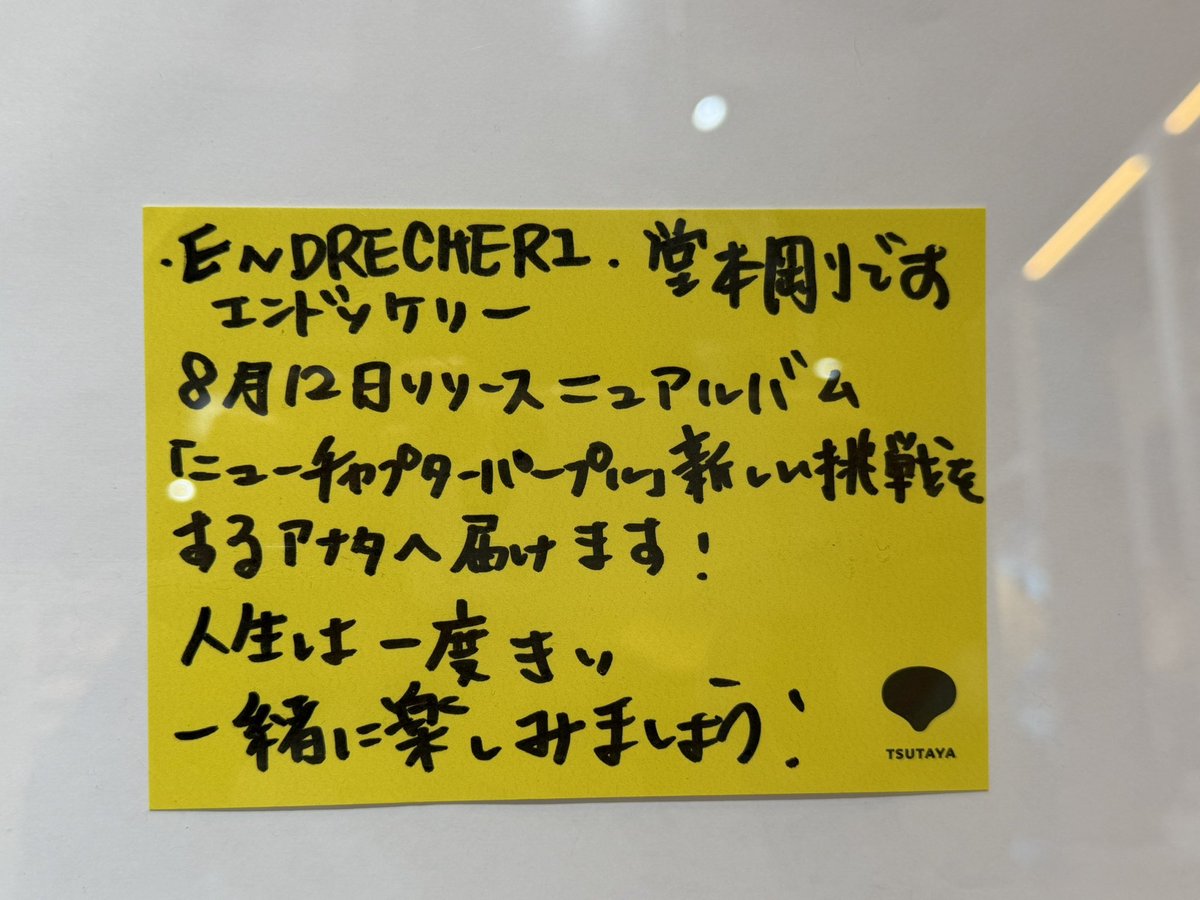 ・ENDRECHERI. 堂本剛です
エンドリッケリー
8月12日リリース ニューアルバム
「ニューチャプターパープル」新しい挑戦を
するアナタへ届けます!
人生は一度きり
一緒に楽しみましょう!
TSUTAYA